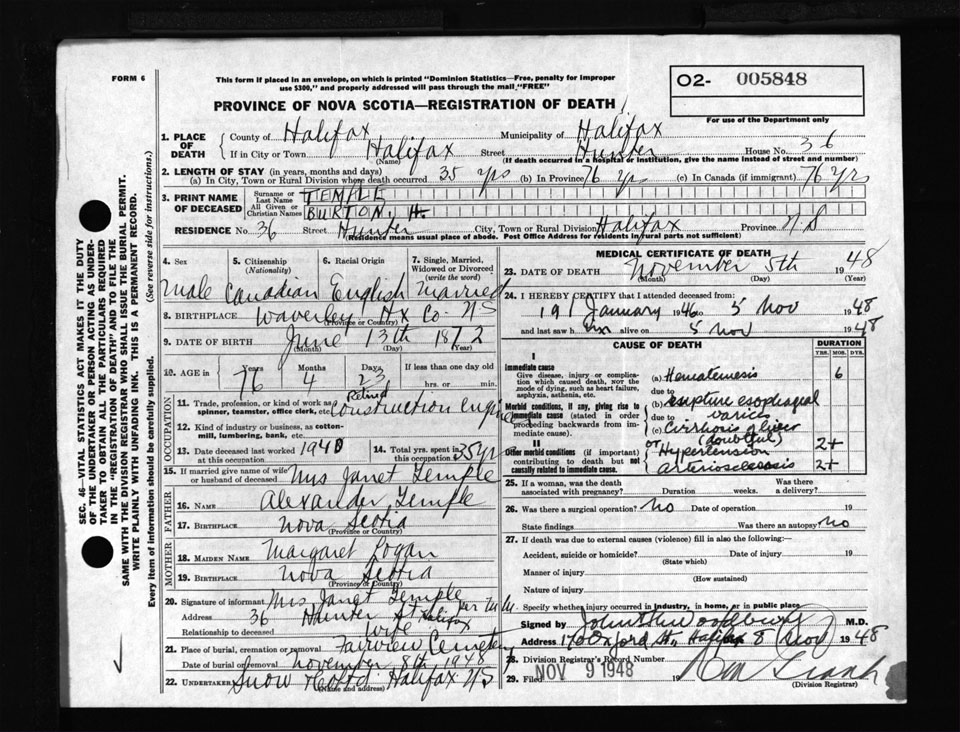 FORM 6
This form if placed in an envelope, on which is printed "Dominion Statistics—Free, penalty for improper
use $300," and properly addressed will pass through the mail "FREE"
O2- 005848
PROVINCE OF NOVA SCOTIA—REGISTRATION OF DEATH
For use of the Department only
1. PLACE OF DEATH
County of Halifax Municipality of Halifax
If in City or Town Halifax Street Hunter House No. 36
(Name) (If death occurred in a hospital or institution, give the name instead of street and number)
2. LENGTH OF STAY (in years, months and days)
(a) In City, Town or Rural Division where death occurred 35 yrs (b) In Province 76 yrs (c) In Canada (if immigrant) 76 yrs
3. PRINT NAME OF DECEASED
Surname or Last Name TEMPLE
All Given or Christian Names BURTON, H.
RESIDENCE No. 36 Street Hunter City, Town or Rural Division Halifax Province N.S
(Residence means usual place of abode. Post Office Address for residents in rural parts not sufficient)
4. SEX 5. CITIZENSHIP (Nationality) 6. RACIAL ORIGIN 7. Single, Married, Widowed or Divorced (write the word)
Male Canadian English Married
8. BIRTHPLACE Waverley Hx Co. NS
(Province or Country)
9. DATE OF BIRTH June 13th 1872
(Month) (Day) (Year)
10. AGE in Years Months Days If less than one day old
76 4 23 hrs. or min.
OCCUPATION
11. Trade, profession, or kind of work as spinner, teamster, office clerk, etc. Retired Construction Engineer
12. Kind of industry or business, as cotton-mill, lumbering, bank, etc.
13. Date deceased last worked at this occupation 1940 14. Total yrs. spent in this occupation 35 yrs
15. If married give name of wife or husband of deceased Mrs Janet Temple
FATHER
16. NAME Alexander Temple
17. BIRTHPLACE Nova Scotia
MOTHER
18. MAIDEN NAME Margaret Logan
19. BIRTHPLACE Nova Scotia
(Province or Country)
20. Signature of informant Mrs Janet Temple
Address 36 Hunter St Halifax
Relationship to deceased wife
21. Place of burial, cremation or removal Fairview Cemetery
Date of burial or removal November 8th, 1948
22. UNDERTAKER Snow & Co Ltd Halifax NS
(Name and address)
MEDICAL CERTIFICATE OF DEATH
23. DATE OF DEATH November 5th 1948
(Month) (Day) (Year)
24. I HEREBY CERTIFY that I attended deceased from:
191 January 1946 to 5 Nov 1948
and last saw him alive on 5 Nov 1948
CAUSE OF DEATH DURATION
YRS. MOS. DYS.
I
Immediate cause
Give disease, injury or complication which caused death, NOT the mode of dying, such as heart failure, asphyxia, asthenia, etc.
(a) Hematemesis 6
due to
Morbid conditions, if any, giving rise to immediate cause (stated in order proceeding backwards from immediate cause).
(b) rupture esophageal varices
due to
(c) Cirrhosis of liver (doubtful)
II
Other morbid conditions (if important) contributing to death but not causally related to immediate cause.
or Hypertension 2+
arteriosclerosis 2+
25. If a woman, was the death associated with pregnancy? Duration weeks. Was there a delivery?
26. Was there a surgical operation? No Date of operation 19
State findings Was there an autopsy No
27. If death was due to external causes (violence) fill in also the following:—
Accident, suicide or homicide? Date of injury 19
(State which)
Manner of injury
(How sustained)
Nature of injury
Specify whether injury occurred in industry, in home, or in public place
Signed by M.D.
Address 170 Oxford St, Halifax 8 Nov 1948
28. Division Registrar's Record Number
29. Filed NOV 9 1948 19
(Division Registrar)
SEC. 46—VITAL STATISTICS ACT MAKES IT THE DUTY
OF THE UNDERTAKER OR PERSON ACTING AS UNDER-
TAKER TO OBTAIN ALL THE PARTICULARS REQUIRED
IN THE "REGISTRATION OF DEATH" AND TO FILE THE
SAME WITH THE DIVISION REGISTRAR WHO SHALL ISSUE THE BURIAL PERMIT.
WRITE PLAINLY WITH UNFADING INK. THIS IS A PERMANENT RECORD.
Every item of information should be carefully supplied. (See reverse side for instructions.)